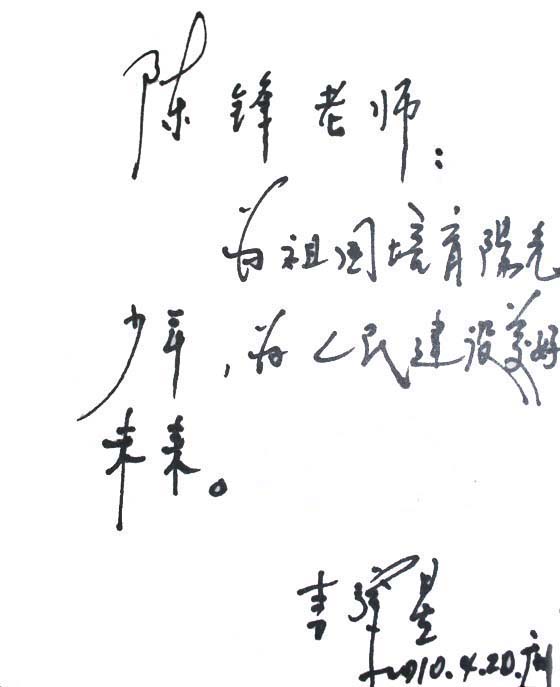 陈锋老师：
为祖国培育阳光
少年，为人民建设美好
未来。
2010.4.20.